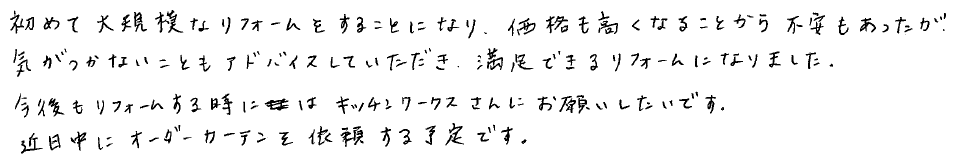 初めて大規模なリフォームをすることになり、価格も高くなることから不安もあったが、
気がつかないこともアドバイスしていただき、満足できるリフォームになりました。
今後もリフォームする時にはキッチンワークスさんにお願いしたいです。
近日中にオーダーカーテンを依頼する予定です。